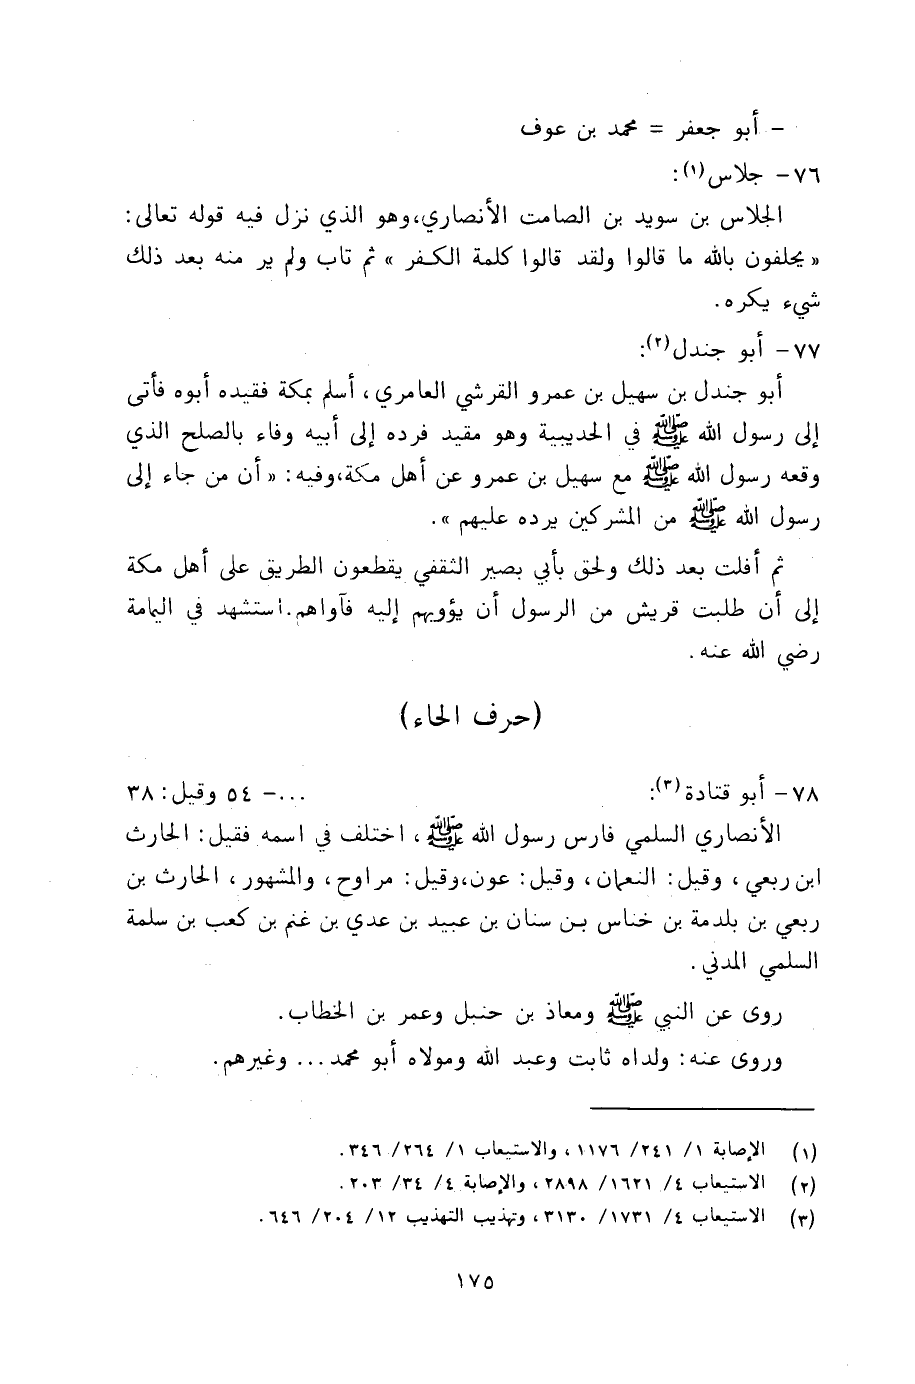 - أبو جعفر = محمد بن عوف
٧٦- جلاس(١):
الجلاس بن سويد بن الصامت الأنصاري،وهو الذي نزل فيه قوله تعالى:
« يحلفون بالله ما قالوا ولقد قالوا كلمة الكفر » ثم تاب ولم ير منه بعد ذلك
شيء يكره.
٧٧- أبو جندل(٢):
أبو جندل بن سهيل بن عمرو القرشي العامري، أسلم بمكة فقيده أبوه فأتى
إلى رسول الله ﷺ في الحديبية وهو مقيد فرده إلى أبيه وفاء بالصلح الذي
وقعه رسول الله ﷺ مع سهيل بن عمرو عن أهل مكة،وفيه: « أن من جاء إلى
رسول الله ﷺ من المشركين يرده عليهم ».
ثم أفلت بعد ذلك ولحق بأبي بصير الثقفي يقطعون الطريق على أهل مكة
إلى أن طلبت قريش من الرسول أن يؤويهم إليه فآواهم.استشهد في اليمامة
رضي الله عنه.
(حرف الحاء)
٧٨- أبو قتادة(٣): ...- ٥٤ وقيل: ٣٨
الأنصاري السلمي فارس رسول الله ﷺ، اختلف في اسمه فقيل: الحارث
ابن ربعي، وقيل: النعمان، وقيل: عون،وقيل: مراوح، والمشهور، الحارث بن
ربعي بن بلدمة بن خناس بن سنان بن عبيد بن عدي بن غنم بن كعب بن سلمة
السلمي المدني.
روى عن النبي ﷺ ومعاذ بن حنبل وعمر بن الخطاب.
وروى عنه: ولداه ثابت وعبد الله ومولاه أبو محمد... وغيرهم.
(١) الإصابة ١/ ٢٤١/ ١١٧٦، والاستيعاب ١/ ٢٦٤/ ٣٤٦.
(٢) الاستيعاب ٤/ ١٦٢١/ ٢٨٩٨، والإصابة ٤/ ٣٤/ ٢٠٣.
(٣) الاستيعاب ٤/ ١٧٣١/ ٣١٣٠، وتهذيب التهذيب ١٢/ ٢٠٤/ ٦٤٦.
١٧٥